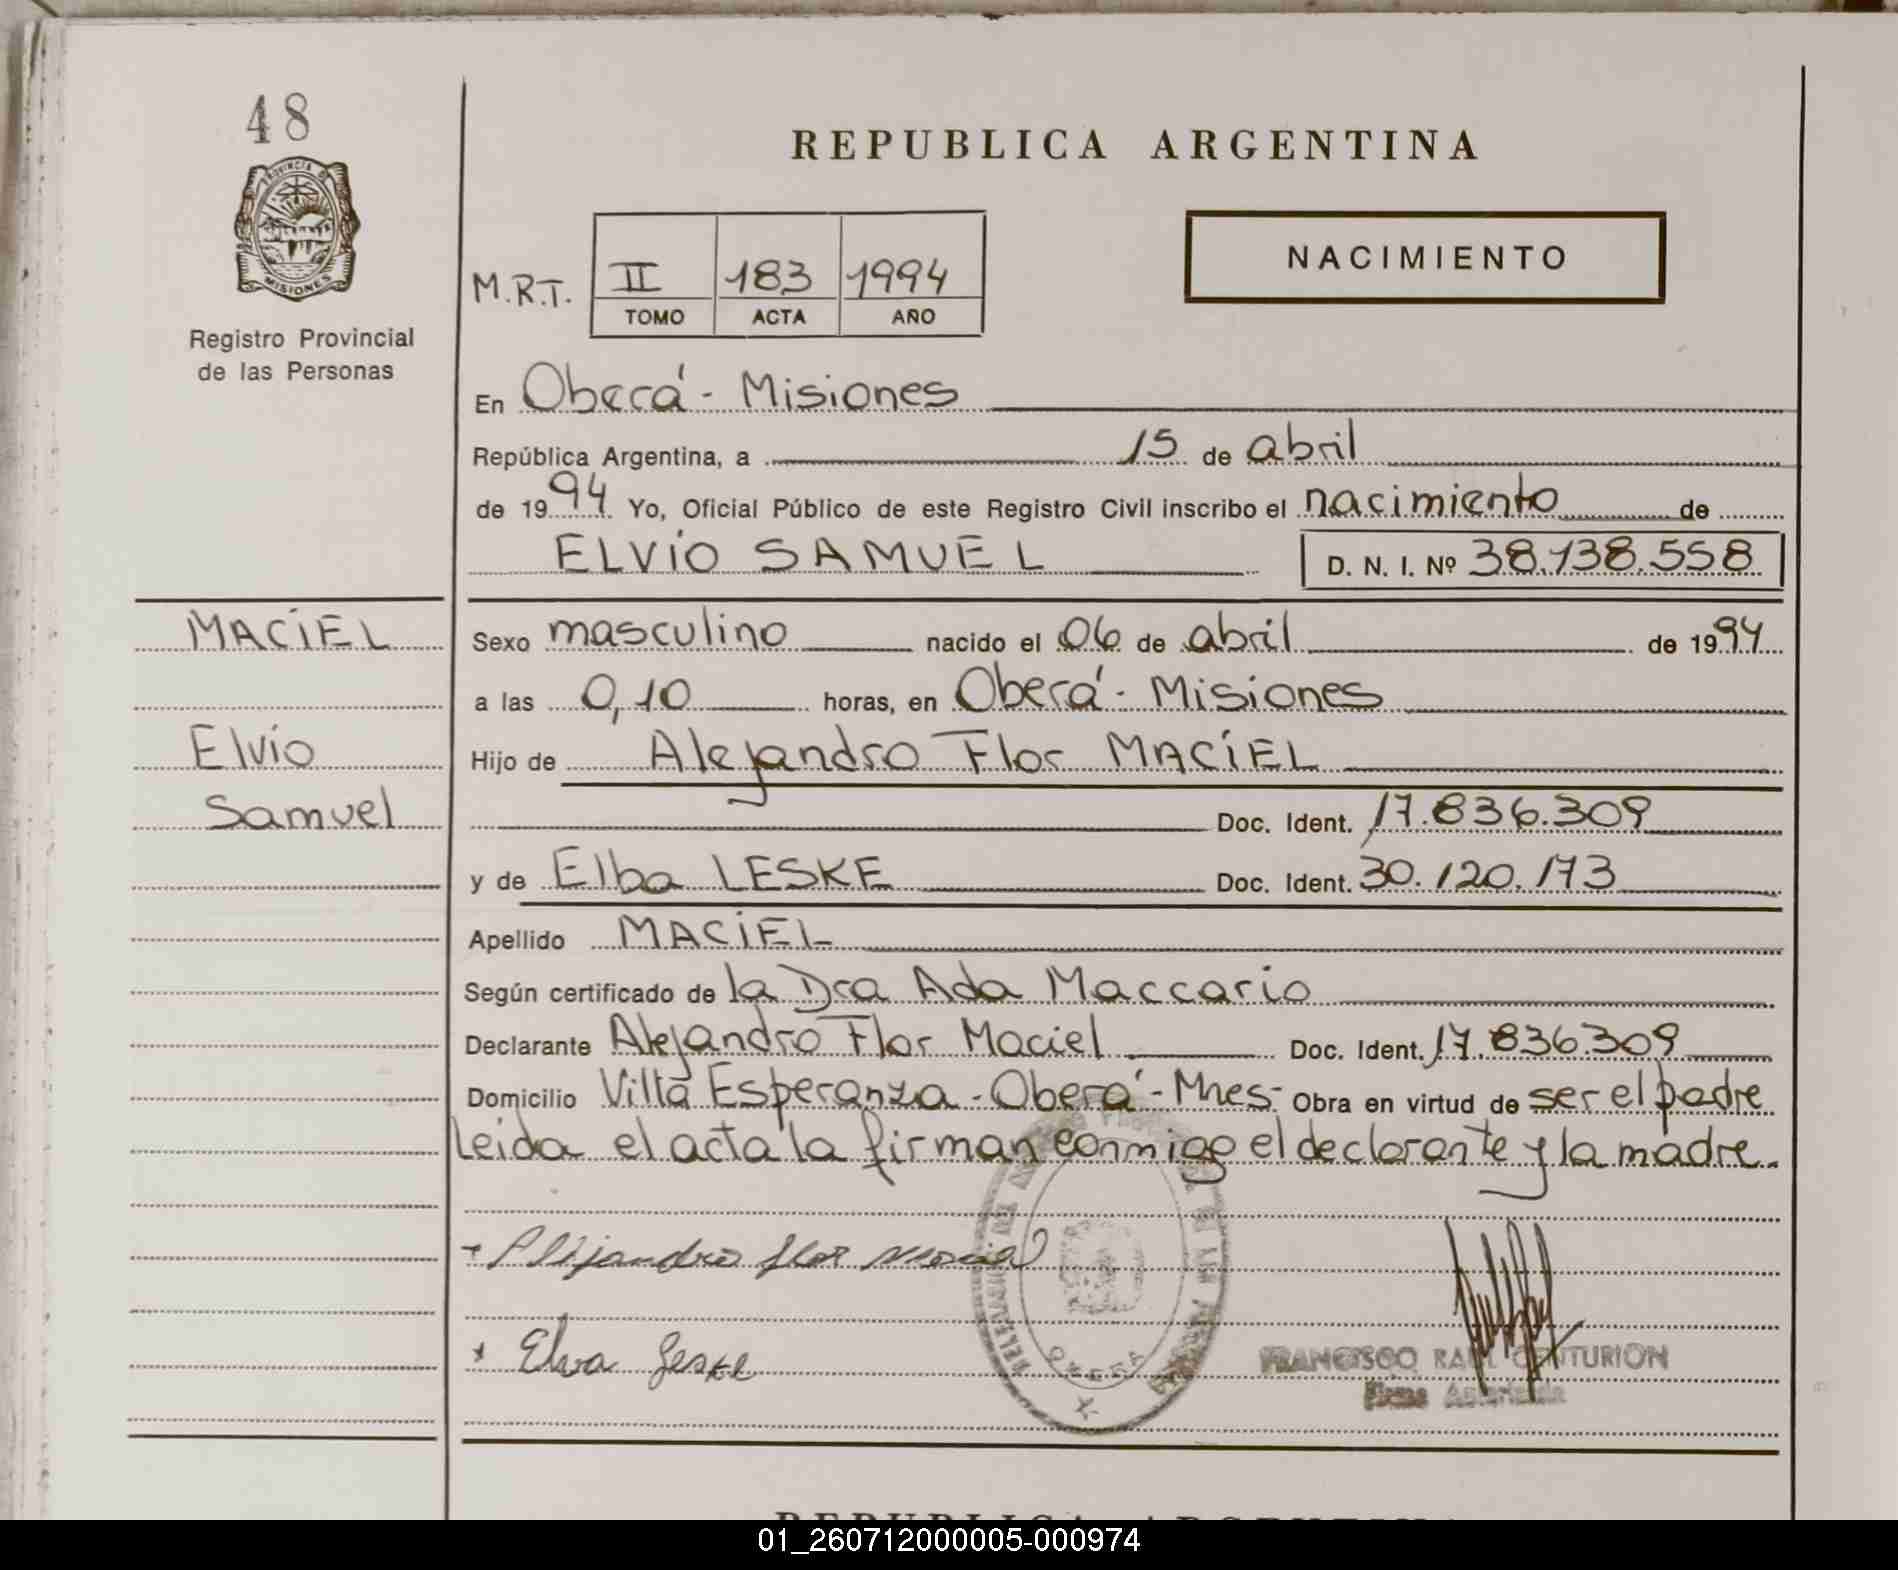 48
REPUBLICA ARGENTINA
PROVINCIA DE
MISIONES
NACIMIENTO
M.R.T. II 183 1994
TOMO ACTA AÑO
Registro Provincial
de las Personas
En Oberá - Misiones
República Argentina, a 15 de abril
de 1994 Yo, Oficial Público de este Registro Civil inscribo el nacimiento de
ELVIO SAMUEL D. N. I. Nº 38.138.558
MACIEL Sexo masculino nacido el 06 de abril de 1994
a las 0,10 horas, en Oberá - Misiones
Elvio Hijo de Alejandro Flor MACIEL
Samuel Doc. Ident. 17.836.309
y de Elba LESKE Doc. Ident. 30.120.173
Apellido MACIEL
Según certificado de la Dra Ada Maccario
Declarante Alejandro Flor Maciel Doc. Ident. 17.836.309
Domicilio Villa Esperanza - Oberá - Mnes - Obra en virtud de ser el padre
Leida el acta la firman conmigo el declarante y la madre.
Alejandro flor Maciel
Elva Leske
OBERA
FRANCISCO RAUL CENTURION
Firma Autorizada
REPUBLICA ARGENTINA
01_260712000005-000974